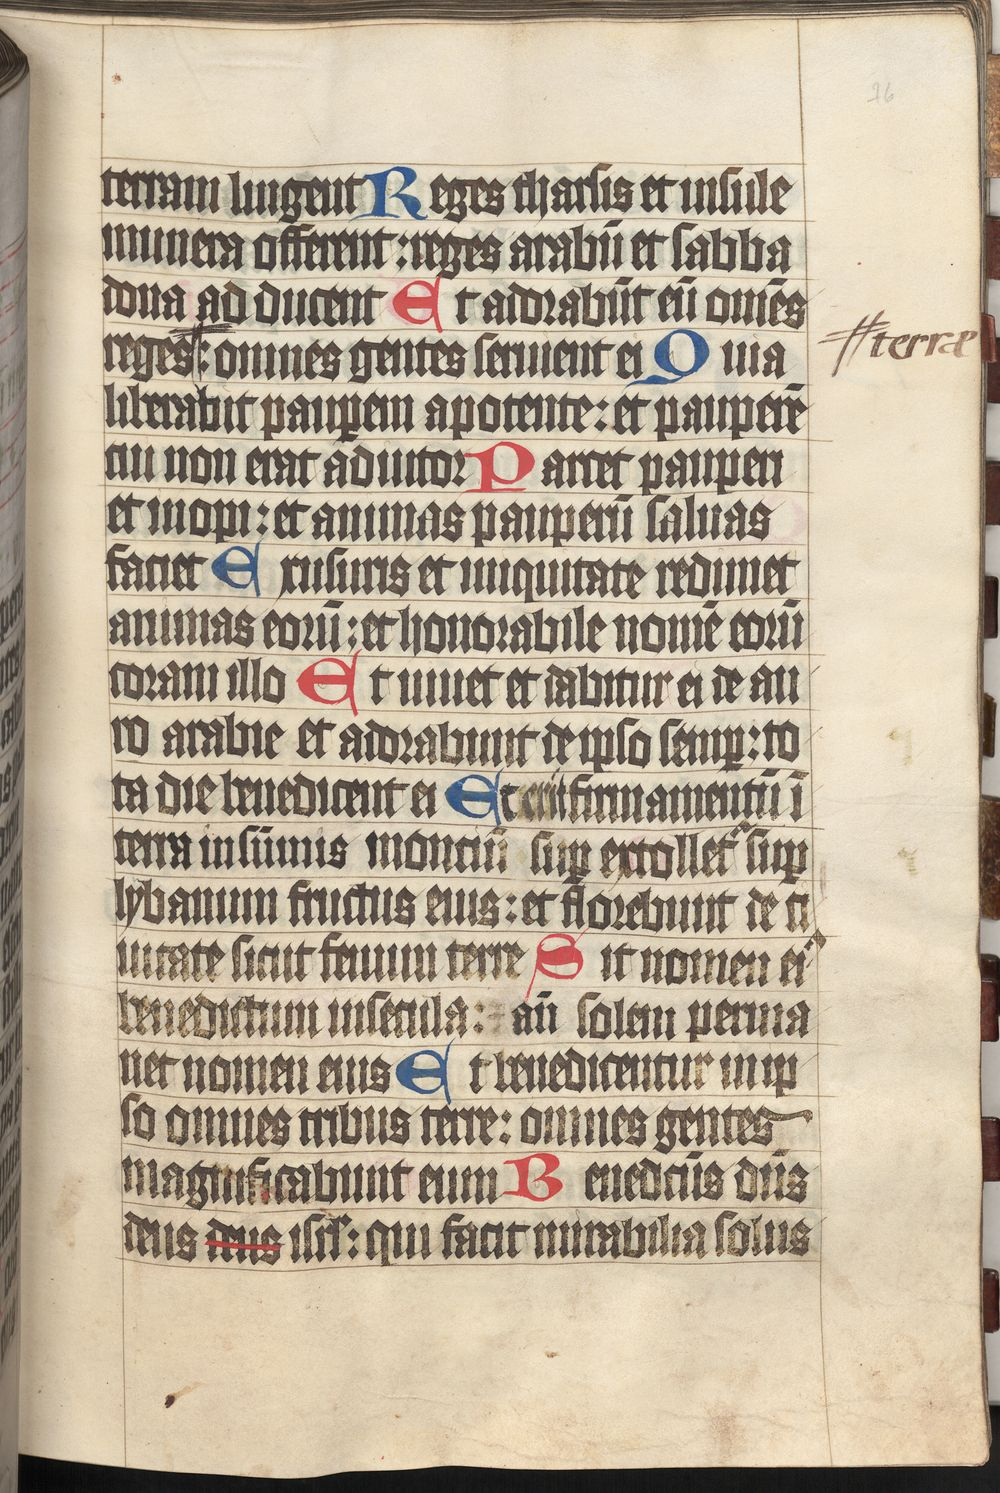 terram lingent Reges tharsis et insule
munera offerent : reges arabū et sabba
dona ad ducent Et adorabūt eū om̄es
reges : omnes gentes seruient ei Quia
terræ
liberabit paupem a potente : et pauperē
cui non erat adiutor Parcet pauperi
et inopi : et animas pauperū saluas
faciet Ex usuris et iniquitate redimet
animas eorū : et honorabile nomē eorū
coram illo Et uiuet et dabitur ei de au
ro arabie et adorabunt de ipso semp : to
ta die benedicent ei Et erit firmamentū ī
terra in sūmis montiū sup extollet᷑ sup
lybanum fructus eius : et florebunt de ci
uitate sicut fenum terre Sit nomen ei᷒
benedictum in secula : an̄ solem perma
net nomen eius Et benedicentur in ip
so omnes tribus terre : omnes gentes
magnificabunt eum Benedct̄us dn̄s
deus deus isrl̄ : qui facit mirabilia solus